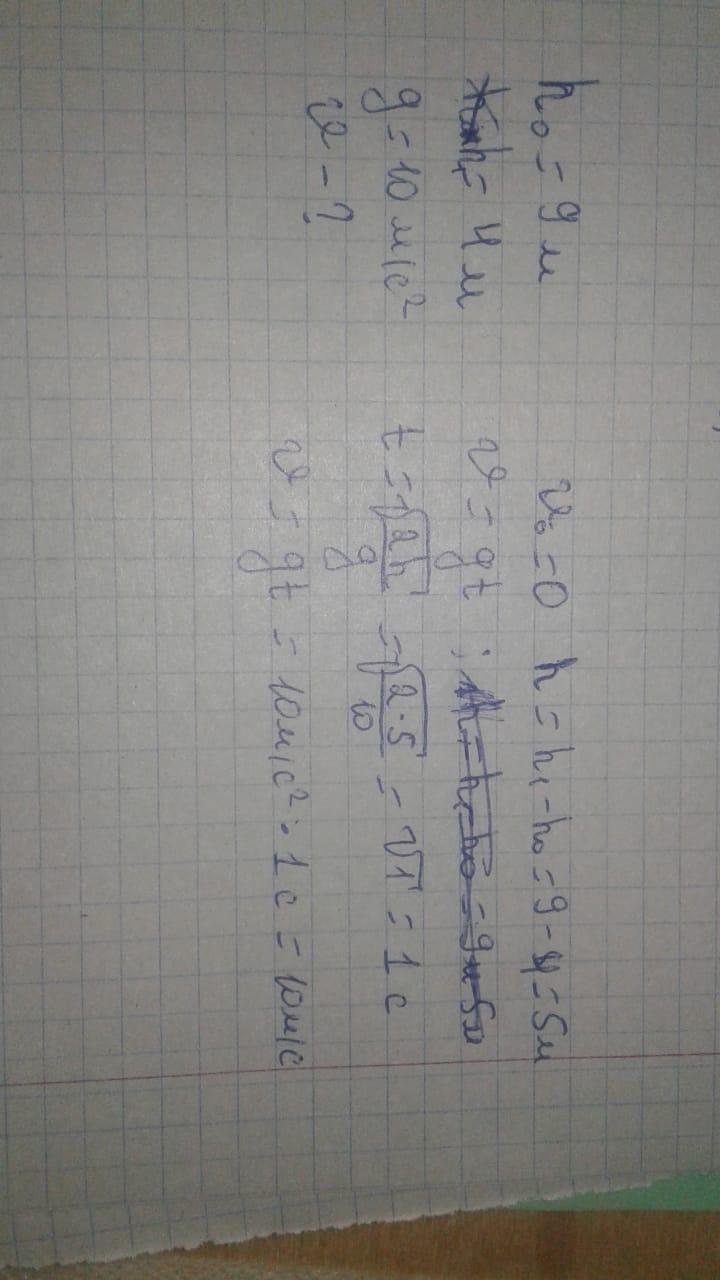 h₀ = 9 м
h₁ = 4 м
g = 10 м/с²
v - ?
v₀ = 0 h = h₁ - h₀ = 9 - 4 = 5м
v = gt ; h = h₁ - h₀ = 9м 5м
t = √2h/g = √2·5/10 = √1 = 1 с
v = gt = 10м/с² · 1с = 10м/с